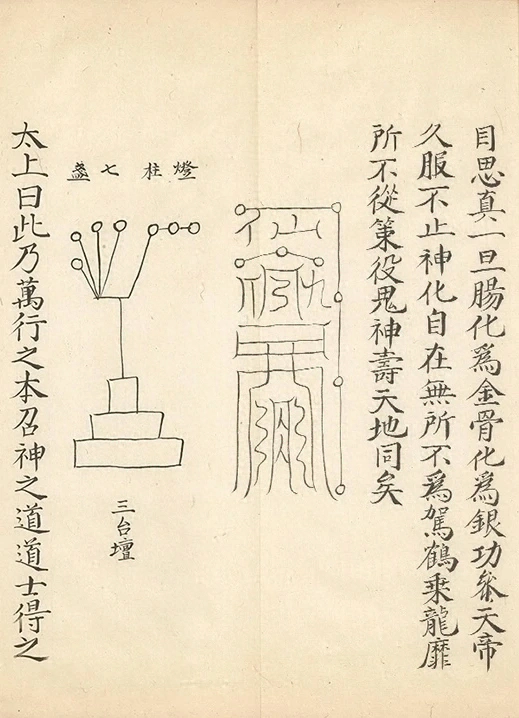 目思真一旦腸化爲金骨化爲銀功叅天帝
久服不止神化自在無所不爲駕鶴乗龍靡
所不從策役鬼神壽天地同矣
燈柱七盞
三台壇
太上曰此乃萬行之本召神之道道士得之